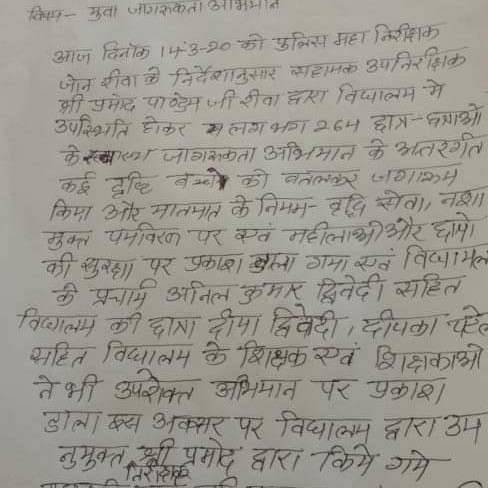 विषय - युवा जागरूकता अभियान
आज दिनांक 14-3-20 को पुलिस महा निरीक्षक
जोन रीवा के निर्देशानुसार सहायक उपनिरीक्षक
श्री प्रमोद पाण्डेय जी रीवा द्वारा विद्यालय में
उपस्थित होकर लगभग 264 छात्र-छात्राओं
के साथ जागरूकता अभियान के अन्तर्गत
कई दृष्टि बच्चों को बतलाकर जागरूक
किया और यातायात के नियम - वृद्धि सेवा, नशा
मुक्त पर्यावरण पर एवं महीलाओं और छात्रो
की सुरक्षा पर प्रकाश डाला गया एवं विद्यालय
के प्रचार्य अनिल कुमार द्विवेदी सहित
विद्यालय की छात्रा दीपा द्विवेदी, दीपिका पटेल
सहित विद्यालय के शिक्षक एवं शिक्षकाओं
ने भी उपरोक्त अभियान पर प्रकाश
डाला इस अवसर पर विद्यालय द्वारा उप
श्री प्रमोद द्वारा किये गये
निरीक्षक